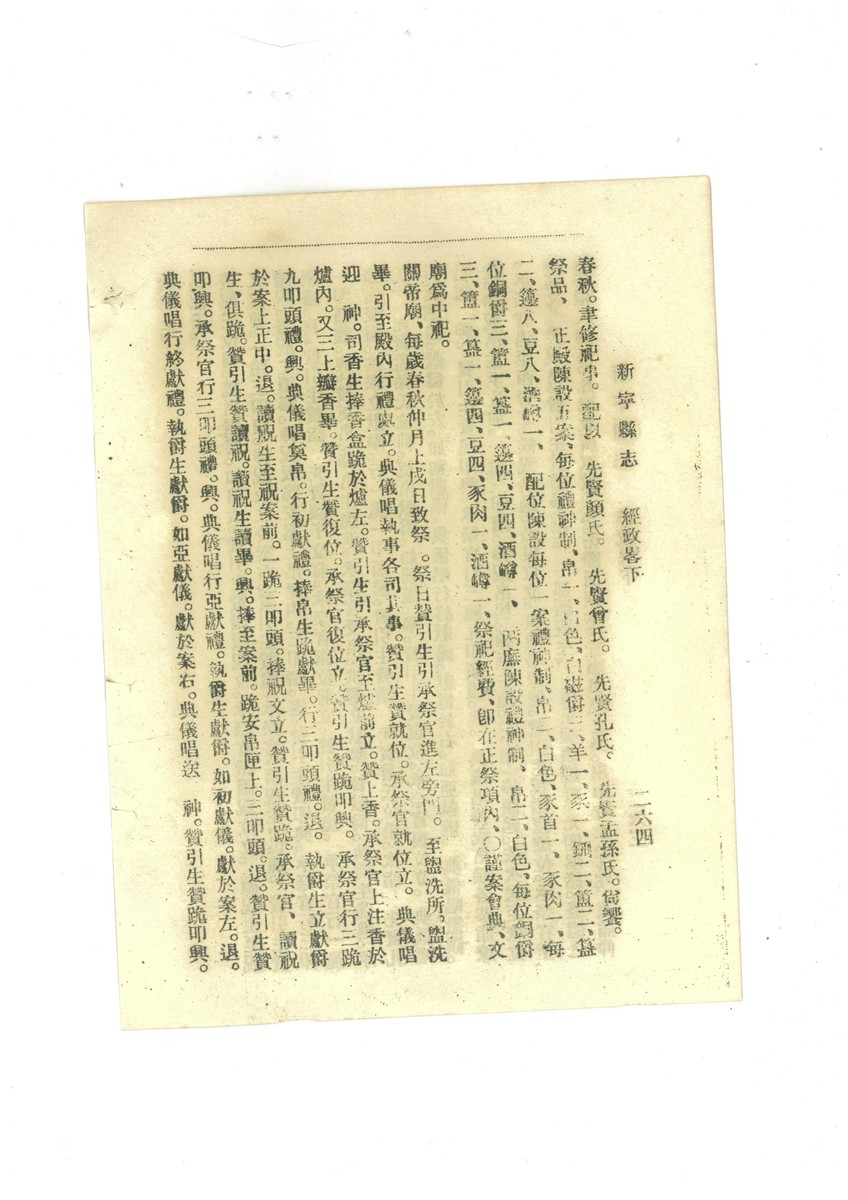 新寧縣志　經政畧下　二六四
春秋。聿修祀事。配以　先賢顏氏。　先賢曾氏。　先賢孔氏。　先賢孟孫氏。尙饗。
祭品、　正殿陳設五案、每位禮神制、帛一、白色、白磁爵三、羊一、豕一、鉶二、簠二、簋
二、籩八、豆八、酒罇一、　配位陳設每位一案禮神制、帛二、白色、豕首一、豕肉一、每
位銅爵三、簠一、簋一、籩四、豆四、酒罇一、　兩廡陳設禮神制、帛二、白色、每位銅爵
三、簠一、簋一、籩四、豆四、豕肉一、酒罇一、祭祀經費、卽在正祭項內、〇謹案會典、文
廟爲中祀。
關帝廟、每歲春秋仲月上戊日致祭。祭日贊引生引承祭官進左旁門。至盥洗所。盥洗
畢。引至殿內行禮處立。典儀唱執事各司其事。贊引生贊就位。承祭官就位立。典儀唱
迎　神。司香生捧香盒跪於爐左。贊引生引承祭官至爐前立。贊上香。承祭官上注香於
爐內。又三上瓣香畢。贊引生贊復位。承祭官復位立。贊引生贊跪叩興。承祭官行三跪
九叩頭禮。興。典儀唱奠帛。行初獻禮。捧帛生跪獻畢。行三叩頭禮。退。執爵生立獻爵
於案上正中。退。讀祝生至祝案前。一跪三叩頭。捧祝文立。贊引生贊跪。承祭官、讀祝
生、俱跪。贊引生贊讀祝。讀祝生讀畢。興。捧至案前。跪安帛匣上。三叩頭。退。贊引生贊
叩興。承祭官行三叩頭禮。興。典儀唱行亞獻禮。執爵生獻爵。如初獻儀。獻於案左。退。
典儀唱行終獻禮。執爵生獻爵。如亞獻儀。獻於案右。典儀唱送　神。贊引生贊跪叩興。